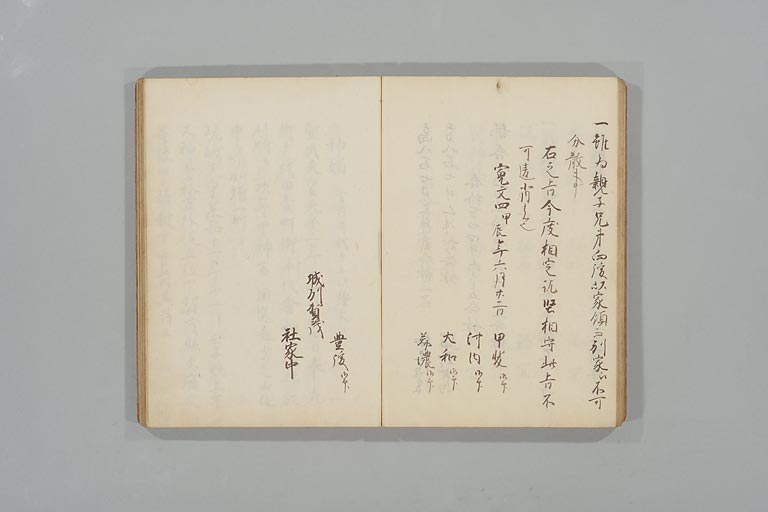 一雖為親子兄弟向後以家領与別家ニ不可
分散事
右之旨今度相定訖堅相守此旨不
可違背者也
寛文四甲辰年六月廿二日
甲斐御守
河内御守
大和御守
美濃御守
豊後御守
城州賀茂
社家中